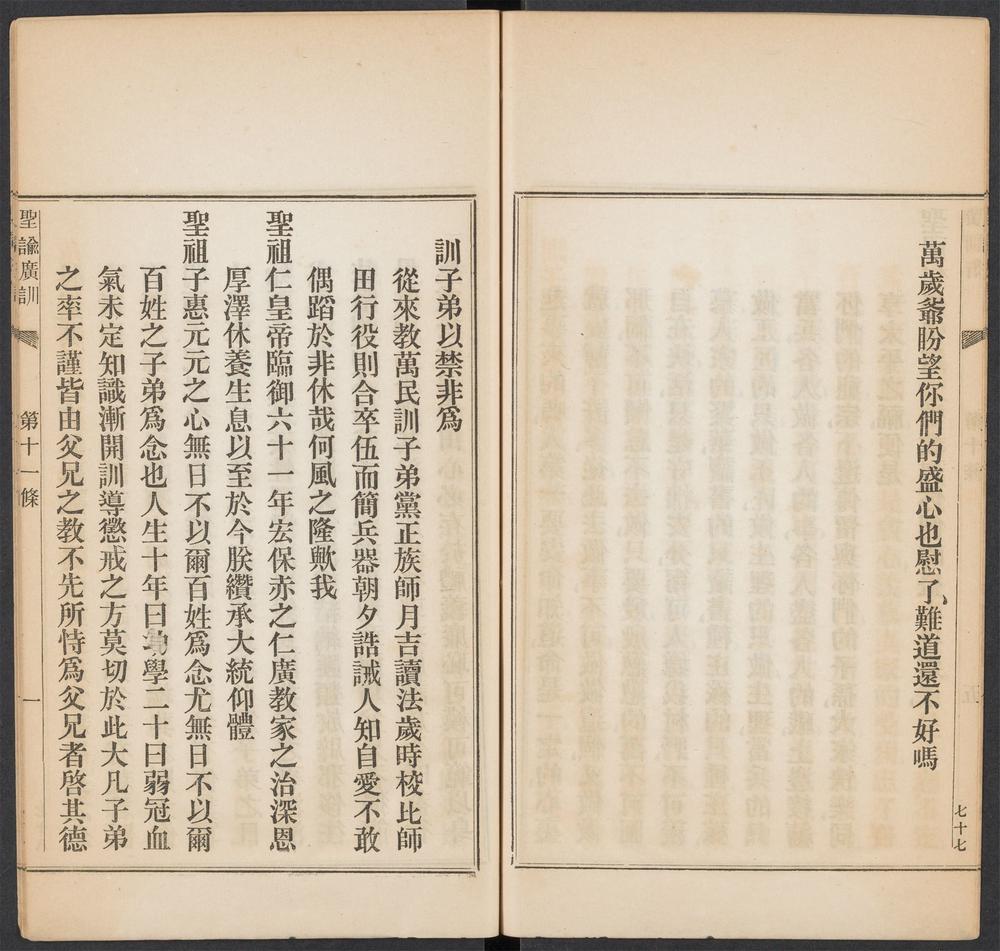 萬歲爺盼望你們的盛心也慰了、難道還不好嗎
七十七
訓子弟以禁非爲
從來教萬民訓子弟黨正族師月吉讀法歲時校比師
田行役則合卒伍而簡兵器朝夕誥誡人知自愛不敢
偶蹈於非休哉何風之隆歟我
聖祖仁皇帝臨御六十一年宏保赤之仁廣教家之治深恩
厚澤休養生息以至於今朕纘承大統仰體
聖祖子惠元元之心無日不以爾百姓爲念尤無日不以爾
百姓之子弟爲念也人生十年曰幼學二十曰弱冠血
氣未定知識漸開訓導懲戒之方莫切於此大凡子弟
之率不謹皆由父兄之教不先所恃爲父兄者啓其德
聖諭廣訓 第十一條 一